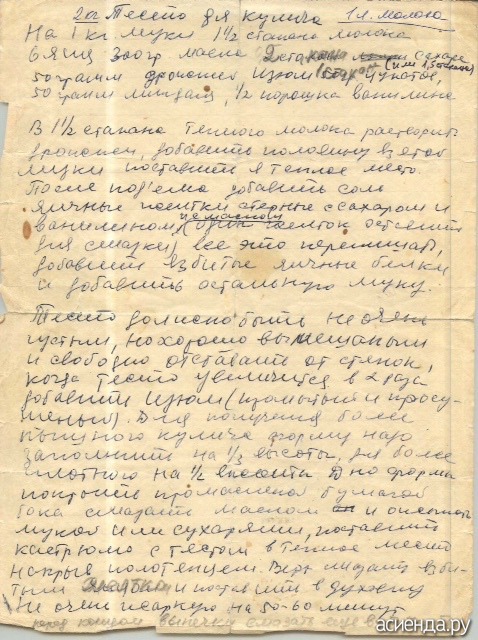 2ой Тесто для кулича 1 л. молока
На 1 кг. муки 1 1/2 стакана молока
6 яиц 300гр масла 2 стакана сахара
(или 1,5 стакана)
50 грамм дрожжей изюм 150гр цукатов,
50 грамм миндаля, 1/2 порошка ванилина
В 1 1/2 стакана теплого молока растворить
дрожжи, добавить половину взятой
муки поставить в теплое место.
После под'ема добавить соль
яичные желтки стертые с сахаром и
и маслом
ванилином, (один желток оставить
для смазки) все это перемешать,
добавить взбитые яичные белки
и добавить остальную муку.
Тесто должно быть не очень
густым, но хорошо вымешаным
и свободно отставать от стенок,
когда тесто увеличится в 2 раза
добавить изюм (промытый и просу-
шеный). Для получения более
пышного кулича форму надо
заполнить на 1/3 высоты, для более
плотного на 1/2 высоты Дно формы
покрыть промасленой бумагой
бока смазать маслом и
мукой или сухарями, поставить
кастрюлю с тестом в теплое место
накрыв полотенцем. Верх смазать взби-
тым желтком и поставить в духовку
не очень жаркую на 50-60 минут
перед концом выпечки смазать еще
асиенда.ру